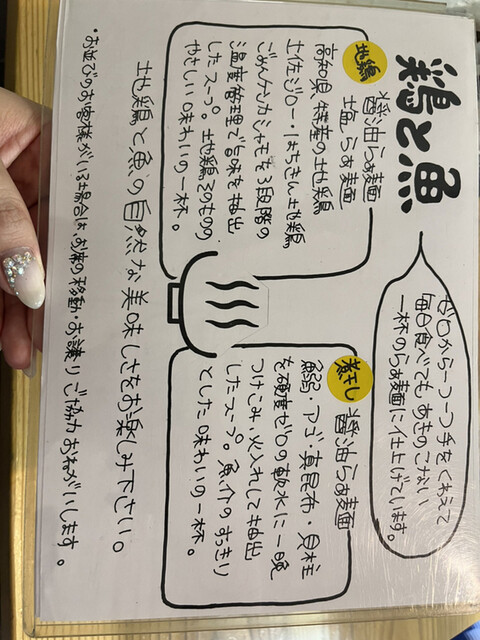 鶏と魚
ゼロから一つ一つ手をくわえて
毎日食べてもあきのこない
一杯のらぁ麺に仕上げています。
地鶏
醤油らぁ麺
塩らぁ麺
高知県特産の土地鶏
土佐ジロー・はちきん地鶏
ごめんケンカシャモを3段階の
温度管理で旨味を抽出
したスープ。地鶏そのものの
やさしい味わいの一杯。
煮干し
醤油らぁ麺
鰯・アゴ・真昆布・貝柱
を硬度ゼロの軟水に一晩
つけこみ火入れして抽出
したスープ。魚介のすっきり
とした味わいの一杯。
地鶏と魚の自然な美味しさをお楽しみ下さい。
*お並びのお客様がいる場合はお席の移動・お譲りご協力おねがいします。